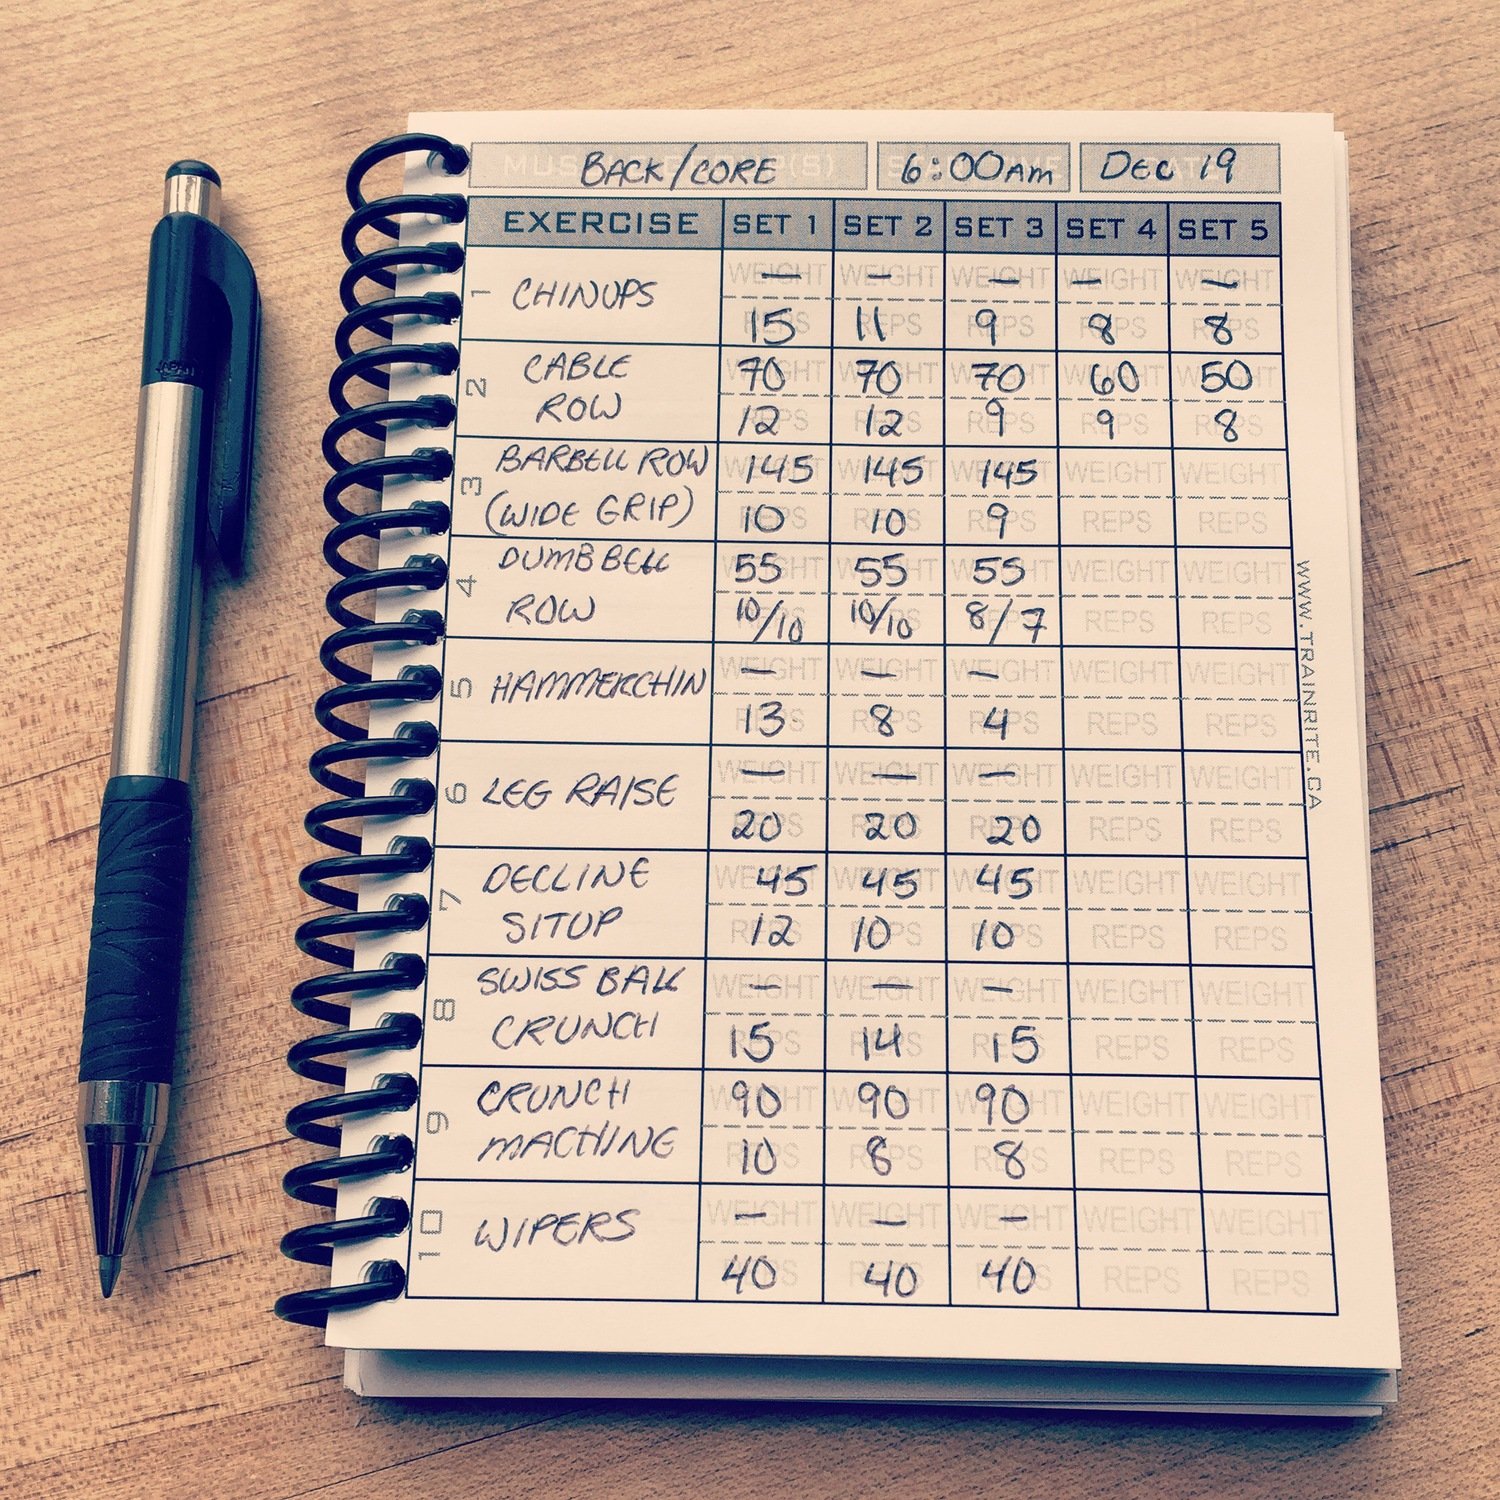 BACK/CORE 6:00AM DEC 19
EXERCISE SET 1 SET 2 SET 3 SET 4 SET 5
WEIGHT — WEIGHT — WEIGHT — WEIGHT — WEIGHT —
1 CHINUPS
REPS 15 REPS 11 REPS 9 REPS 8 REPS 8
2 CABLE WEIGHT 70 WEIGHT 70 WEIGHT 70 WEIGHT 60 WEIGHT 50
ROW REPS 12 REPS 12 REPS 9 REPS 9 REPS 8
3 BARBELL ROW WEIGHT 145 WEIGHT 145 WEIGHT 145 WEIGHT WEIGHT
(WIDE GRIP) REPS 10 REPS 10 REPS 9 REPS REPS
4 DUMBBELL WEIGHT 55 WEIGHT 55 WEIGHT 55 WEIGHT WEIGHT
ROW REPS 10/10 REPS 10/10 REPS 8/7 REPS REPS
5 HAMMERCHIN WEIGHT — WEIGHT — WEIGHT — WEIGHT WEIGHT
REPS 13 REPS 8 REPS 4 REPS REPS
6 LEG RAISE WEIGHT — WEIGHT — WEIGHT — WEIGHT WEIGHT
REPS 20 REPS 20 REPS 20 REPS REPS
7 DECLINE WEIGHT 45 WEIGHT 45 WEIGHT 45 WEIGHT WEIGHT
SITUP REPS 12 REPS 10 REPS 10 REPS REPS
8 SWISS BALL WEIGHT — WEIGHT — WEIGHT — WEIGHT WEIGHT
CRUNCH REPS 15 REPS 14 REPS 15 REPS REPS
9 CRUNCH WEIGHT 90 WEIGHT 90 WEIGHT 90 WEIGHT WEIGHT
MACHINE REPS 10 REPS 8 REPS 8 REPS REPS
10 WIPERS WEIGHT — WEIGHT — WEIGHT — WEIGHT WEIGHT
REPS 40 REPS 40 REPS 40 REPS REPS
WWW.TRAINRITE.CA